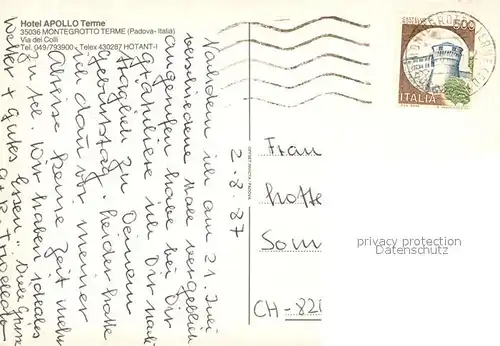 Hotel APOLLO Terme
35036 MONTEGROTTO TERME (Padova-Italia)
Via dei Colli
Tel. 049/793900 - Telex 430287 HOTANT-I
2.8.87
Nachdem ich am 21. Juli
verschiedene Male vergeblich
angerufen habe bei Dir
gratuliere ich Dir nach-
träglich zu Deinem
Geburtstag. Leider hatte
ich dann vor meiner
Abreise keine Zeit mehr
zu tel. Wir haben ideales
Wetter + gutes Essen. Viele Grüsse
Frau
Lotte
Som
CH-820
500
ITALIA
MONTEGROTTO TERME
privacy protection
DATENSCHUTZ